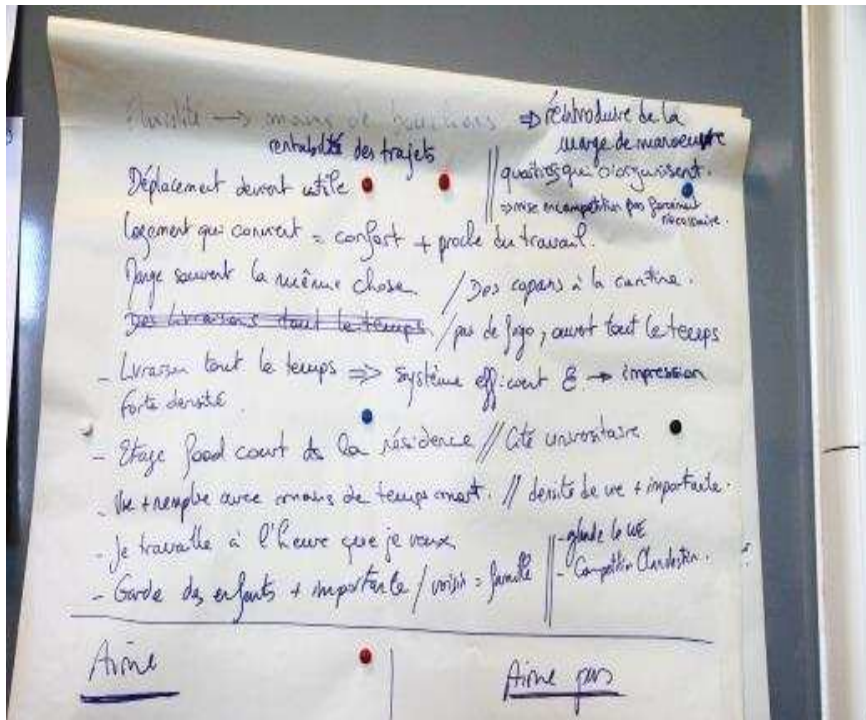 Fluidité → moins de bouchons ⇒ réintroduire de la
marge de manoeuvre
rentabilité des trajets
Déplacement devient utile
quartiers qui s'organisent.
⇒ mise en compétition pas forcément
nécessaire.
Logement qui convient = confort + proche du travail.
Mange souvent la même chose / Des copains à la cantine.
Des livraisons tout le temps / pas de frigo, ouvert tout le temps
- Livraison tout le temps ⇒ système efficient → impression
forte densité.
- Etage food court de la résidence // Cité universitaire
- Vie + remplie avec moins de temps mort. // densité de vie + importante.
- Je travaille à l'heure que je veux
- glande le WE
- Compétition Clandestin.
- Garde des enfants + importante / voisin = famille
Aime
Aime pas